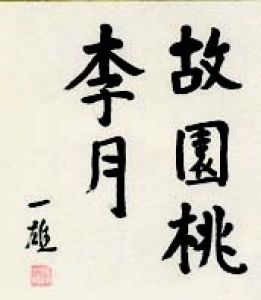 故園桃
李月
一雄